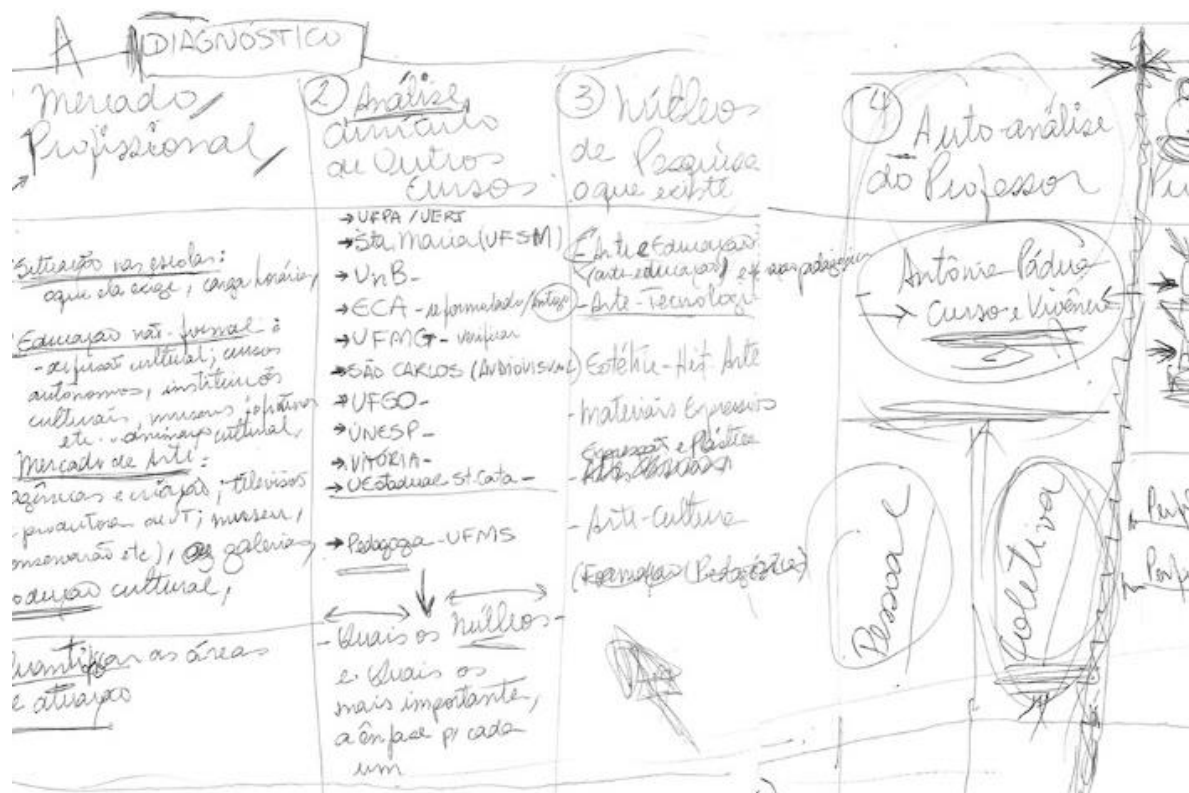 A DIAGNÓSTICO
Mercado
Profissional
Situação nas escolas:
oque ela exige, carga horária,
Educação não-formal:
cultural; cursos
autonomos, instituições
culturais, museus,
etc. animação cultural,
Mercado de Arte:
e criação; televisão
produtora de VT; museu,
etc), galerias,
cultural,
as áreas
atuação
2 Análise
de Outros
Cursos
→UFPA / UERJ
→Sta Maria (UFSM)
→UnB-
→ECA - reformulado/
→UFMG - verificar
→SÃO CARLOS (AUDIOVISUAL)
→UFGO-
→UNESP-
→VITÓRIA-
→UEstadual St. Cata-
→Pedagogia-UFMS
- Quais os Núcleos-
e Quais os
mais importante,
a ênfase p/ cada
um
3 Núcleos
de Pesquisa
o que existe
Arte e Educação
(arte-educação)
-Arte-Tecnologi
Estétic-Hist Arte
- Materiais Expressivos
Expressão e Plástica
- Arte-Cultura
(Formação (Pedagógica)
4 Auto-análise
do Professor
Antônio Pádua
→ Curso e Vivênci
Pessoal
Coletiva